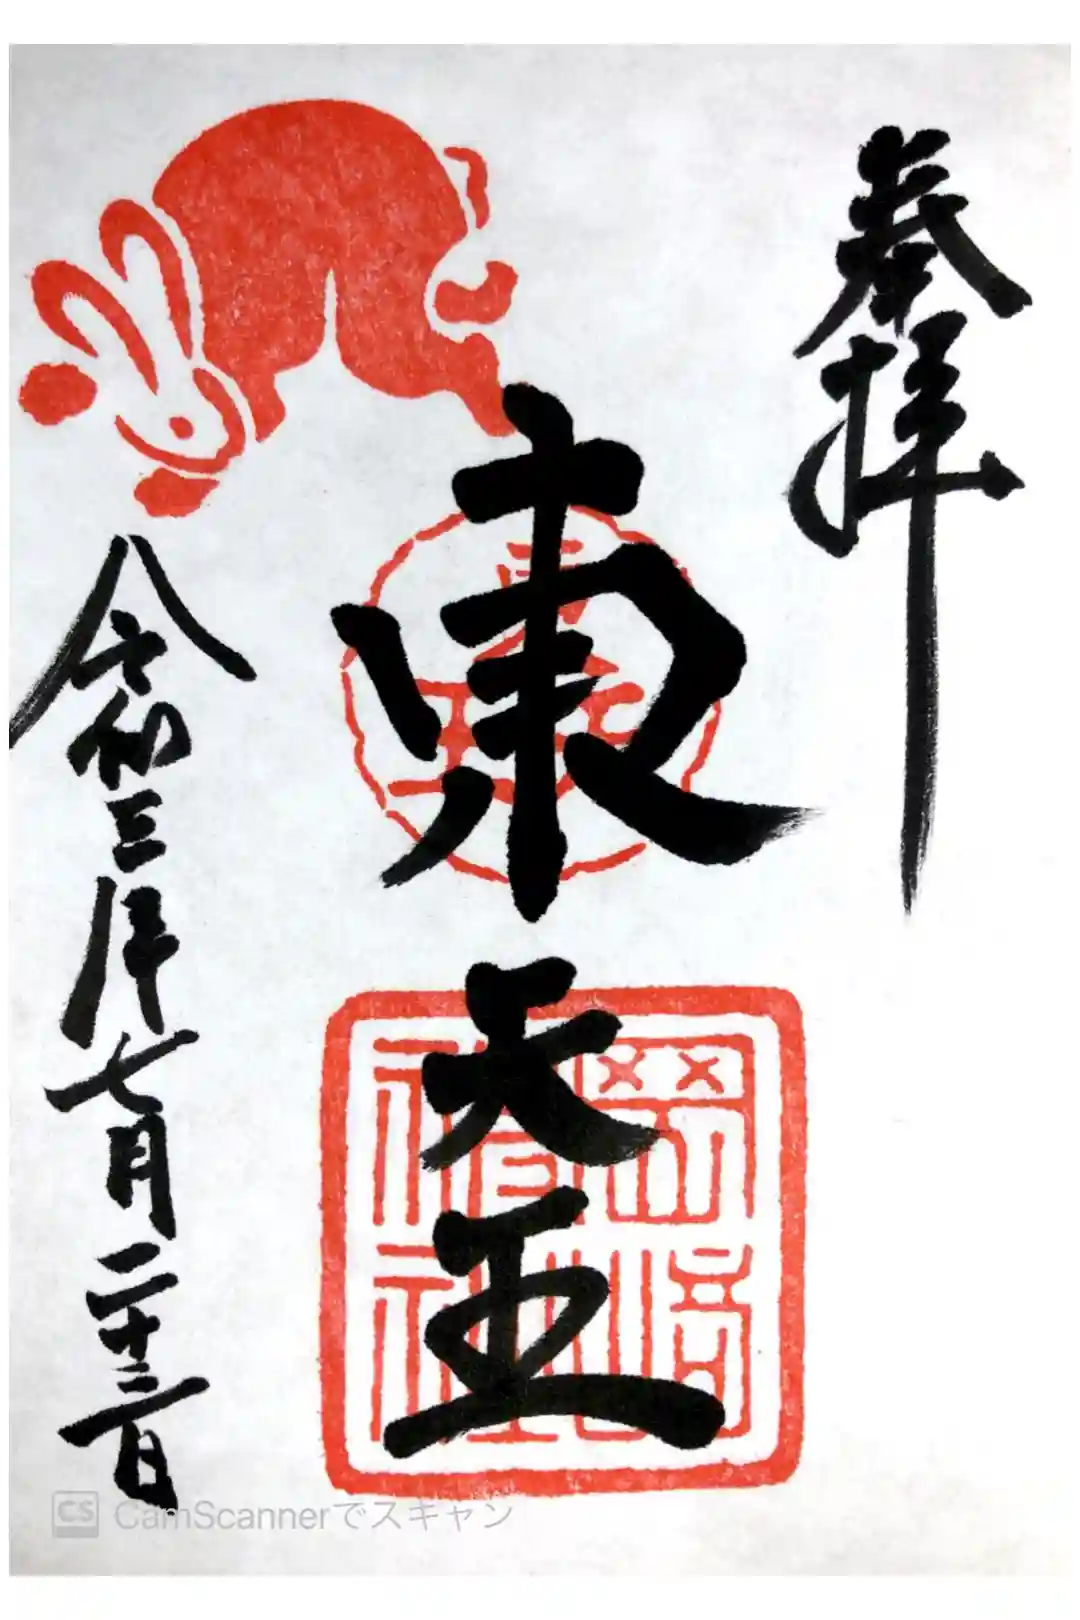 奉拝
東天王
岡崎神社
令和三年七月二十三日
CS CamScannerでスキャン